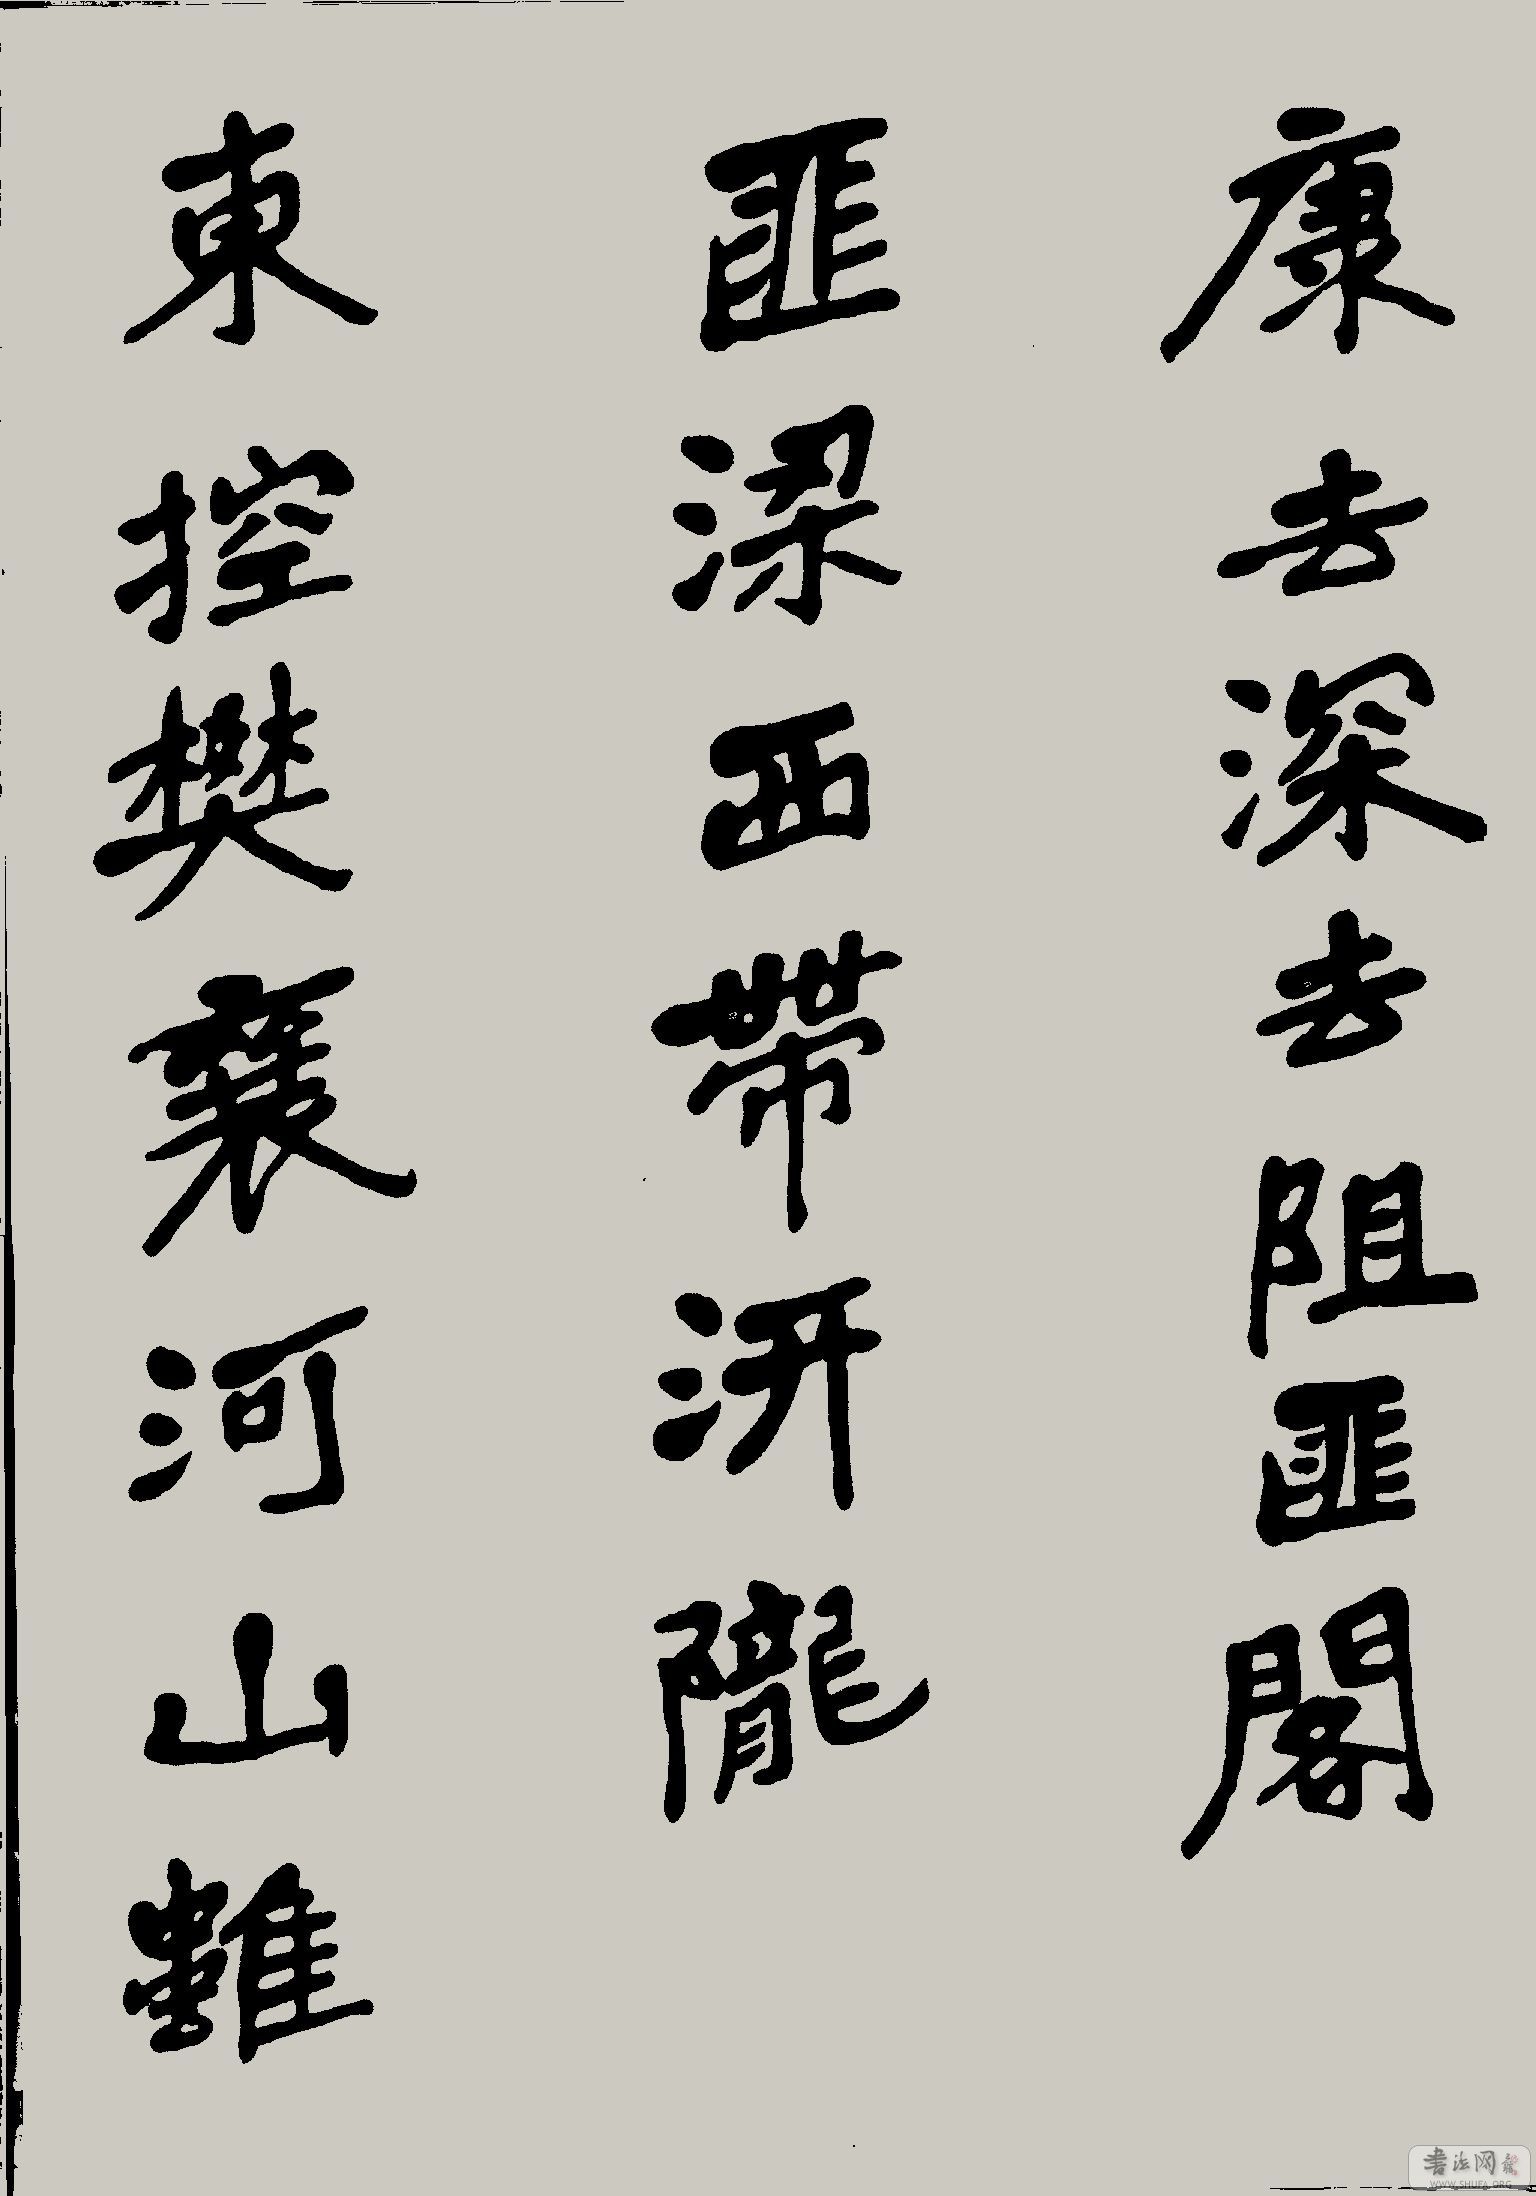 康去深去阻匪閣
匪梁西帶汧隴
東控樊襄河山雖
書法网
WWW.SHUFA.ORG